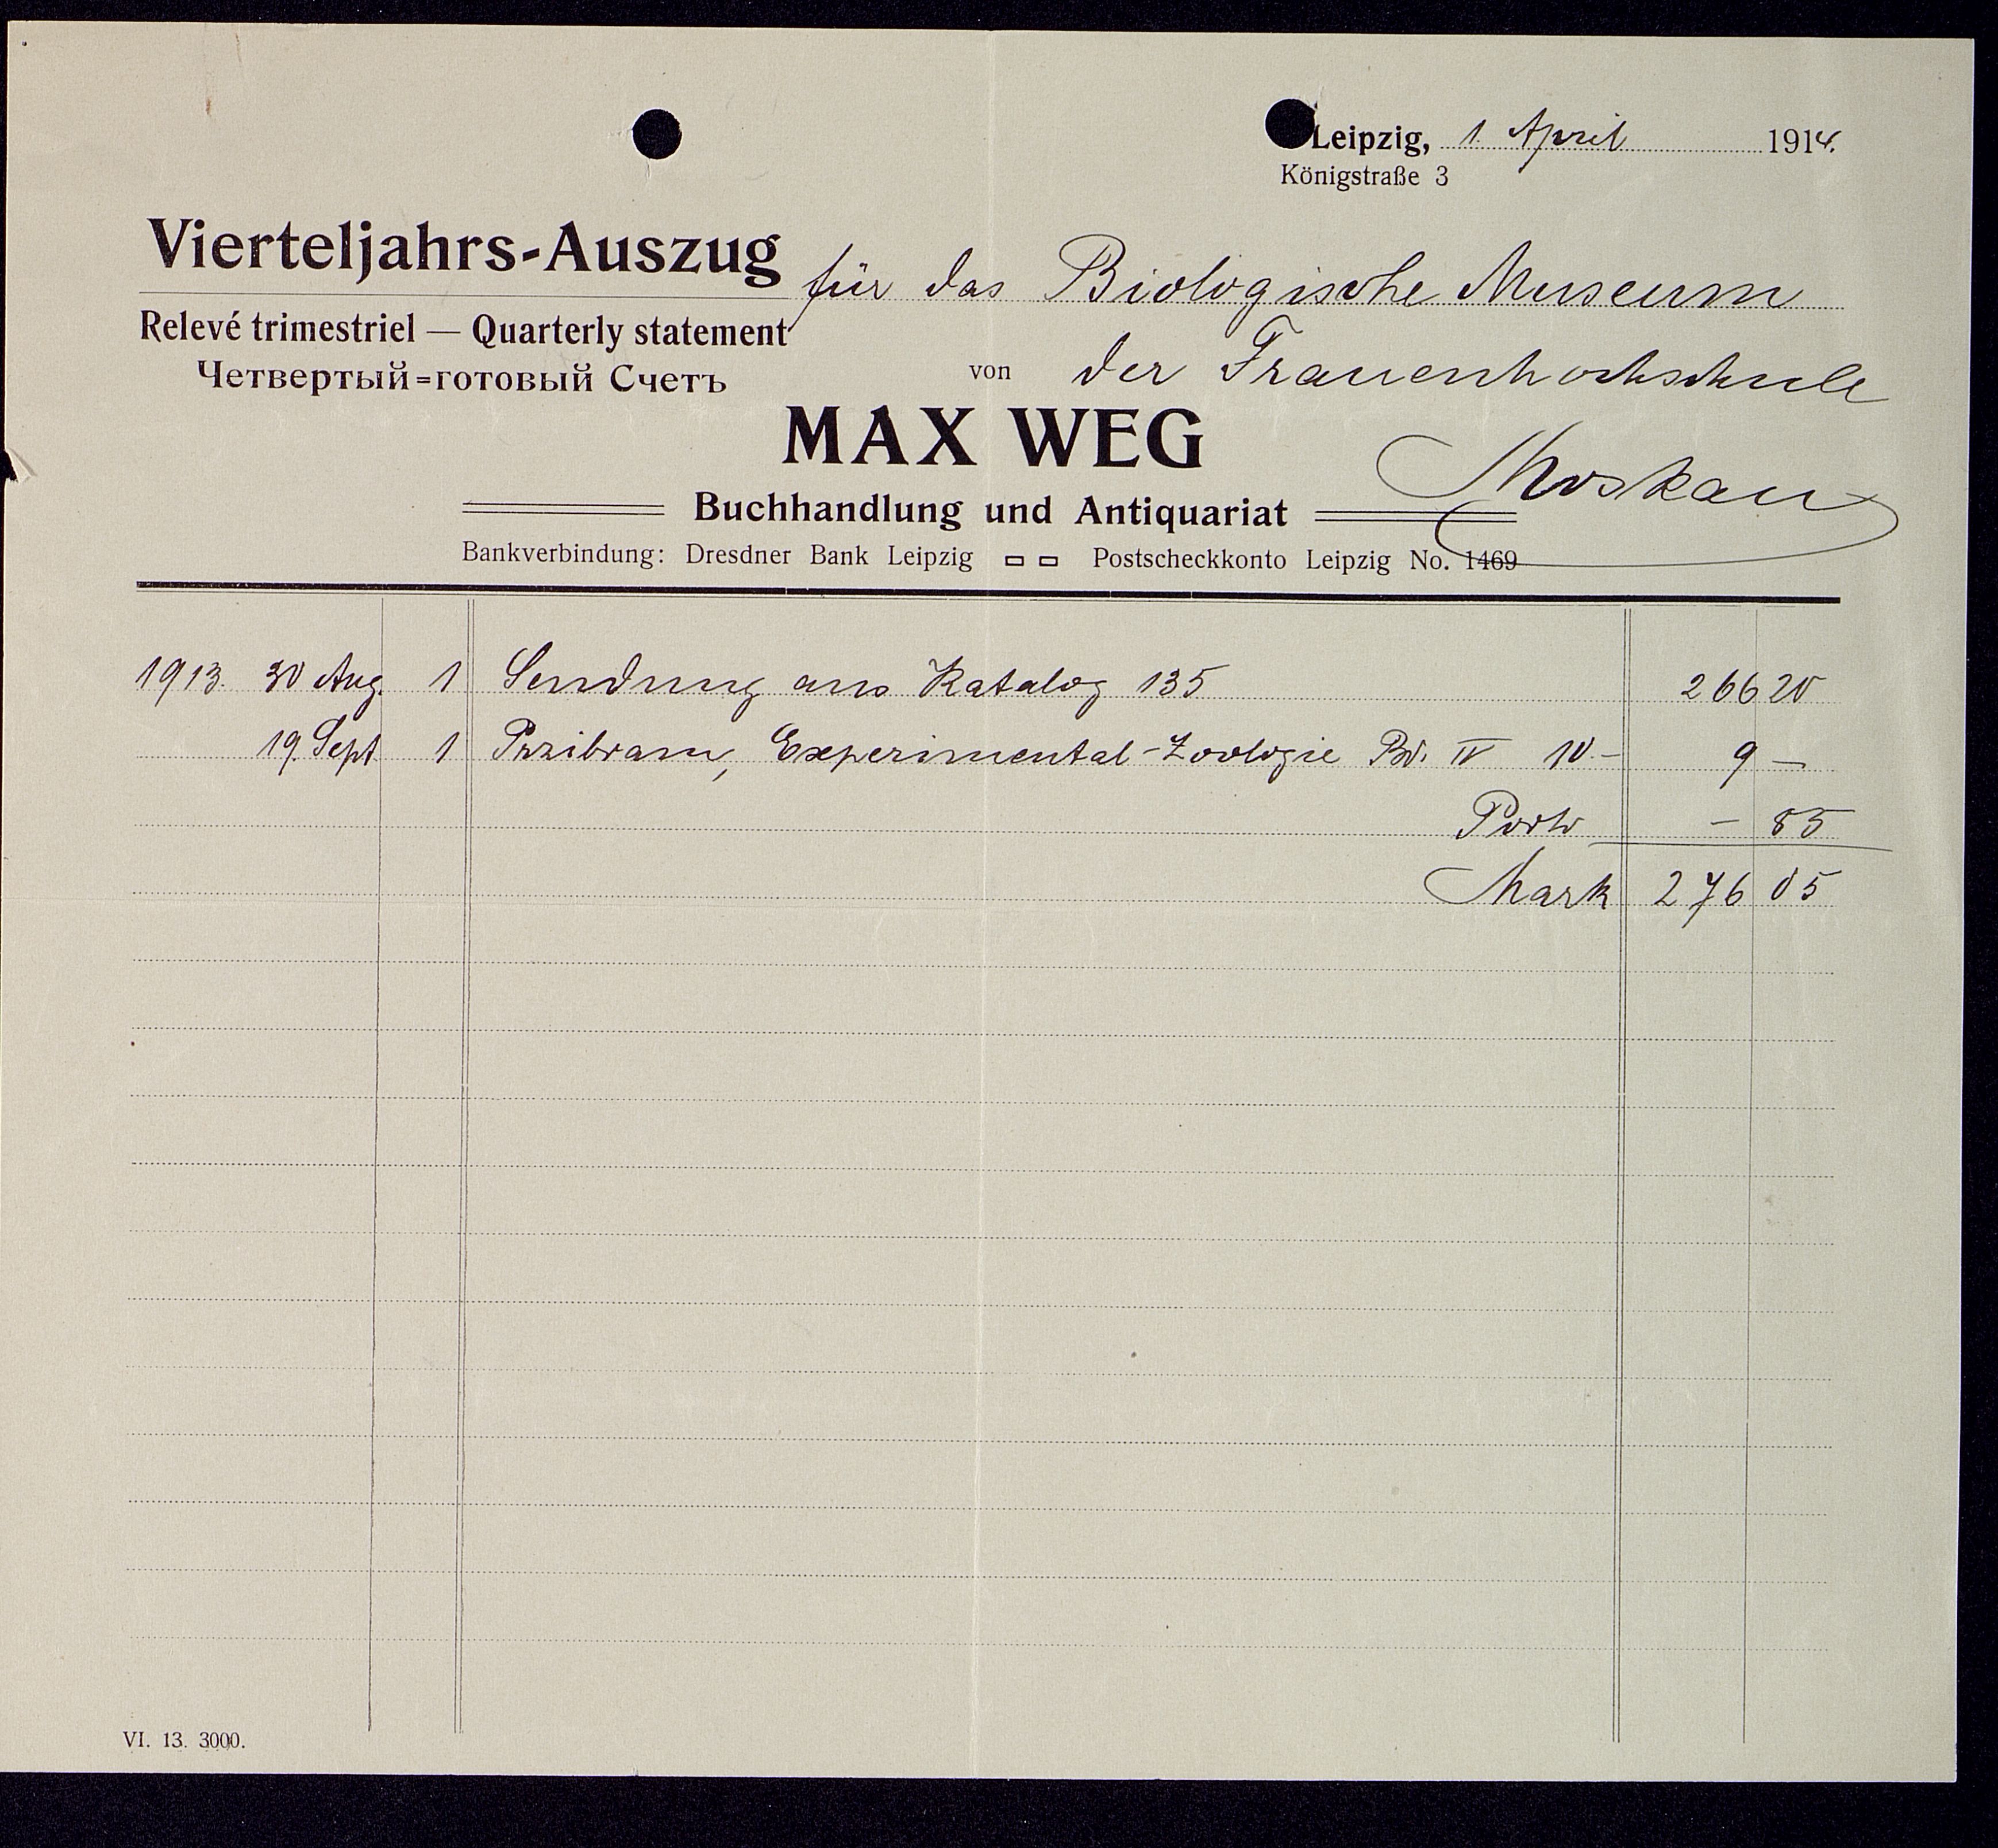 Leipzig, 1. April 1914.
Königstraße 3
Vierteljahrs-Auszug für das Biologische Museum
Relevé trimestriel — Quarterly statement
Четвертый=готовый Счетъ
von der Frauenhochschule
MAX WEG
Moskau
Buchhandlung und Antiquariat
Bankverbindung: Dresdner Bank Leipzig Postscheckkonto Leipzig No. 1469
1913. 30 Aug. 1 Sendung aus Katalog 135 266 20
19. Sept 1 Przibram, Experimental-Zoologie Bd. IV 10.- 9 —
Porto — 85
Mark 276 05
VI. 13. 3000.